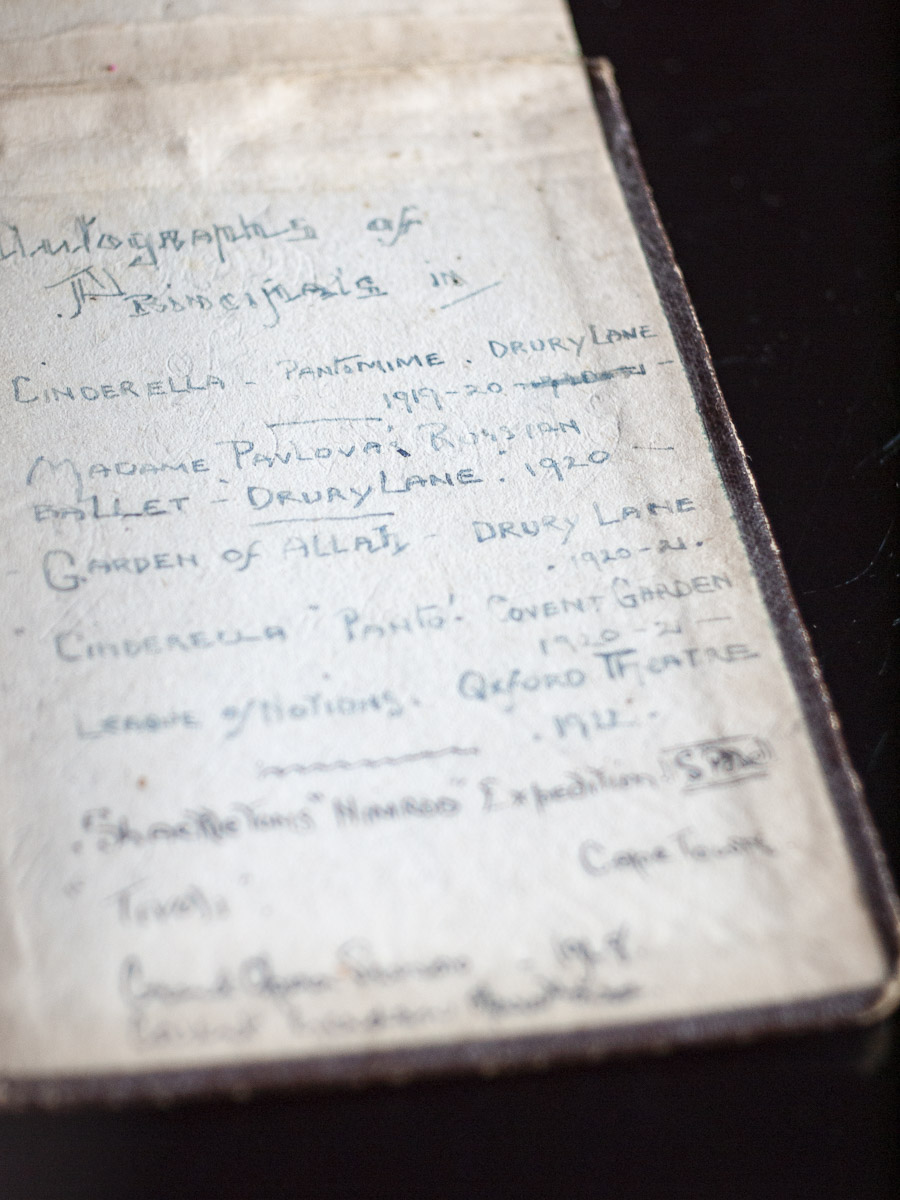 Autographs of
Principals in
CINDERELLA - PANTOMIME. DRURY LANE
1919-20
MADAME PAVLOVA'S RUSSIAN
BALLET - DRURY LANE. 1920
GARDEN of ALLAH - DRURY LANE
1920-21.
CINDERELLA "PANTO". COVENT GARDEN
1920-21
LEAGUE of NOTIONS. OXFORD THEATRE
Expedition
Cape Town
"Tivoli"
Grand Opera Season